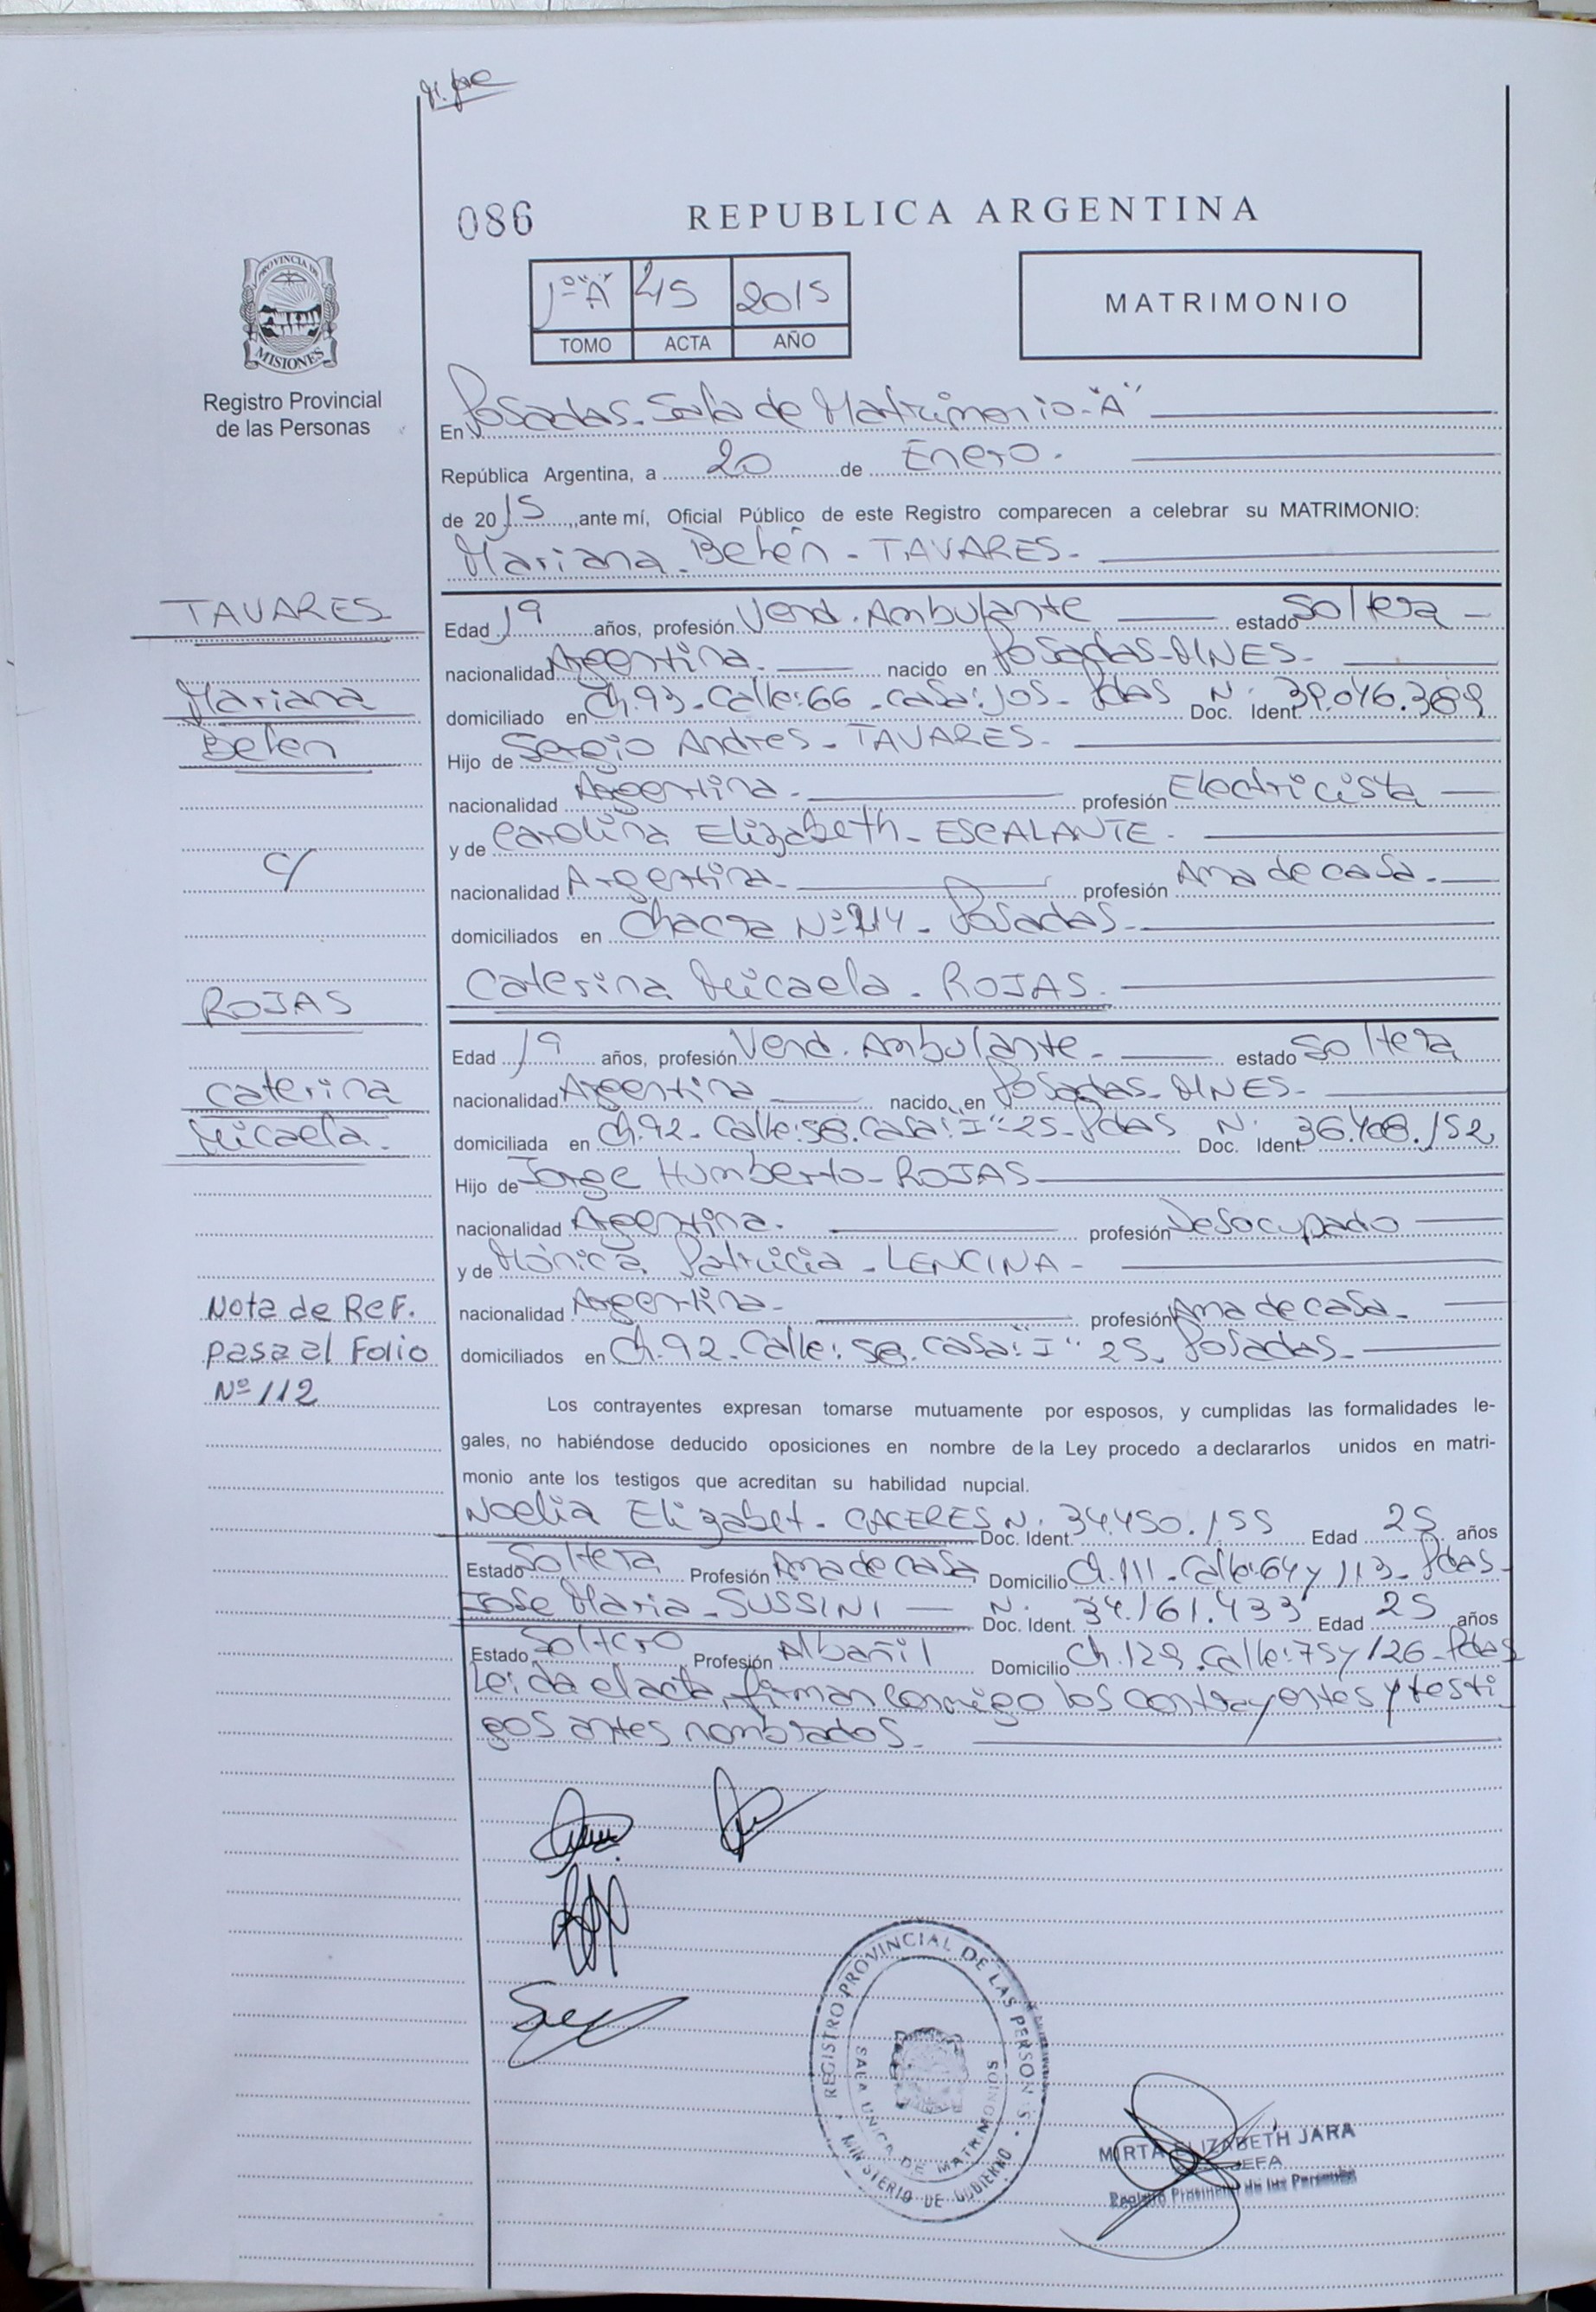 086
REPUBLICA ARGENTINA
1º "A" 45 2015
TOMO ACTA AÑO
MATRIMONIO
PROVINCIA DE
MISIONES
Registro Provincial
de las Personas
En Posadas - Sala de Matrimonio - "A"
República Argentina, a 20 de Enero.
de 2015, ante mí, Oficial Público de este Registro comparecen a celebrar su MATRIMONIO:
Mariana Belén - TAVARES -
TAVARES
Mariana
Belen
c/
ROJAS
Caterina
Micaela.
Nota de Ref.
pasa al Folio
Nº 112
Edad 19 años, profesión Vend. Ambulante estado Soltera -
nacionalidad Argentina - nacido en Posadas - MNES -
domiciliado en Ch. 93 - Calle: 66 - casa: 105 - Pdas N. Doc. Ident.
Hijo de Sergio Andres - TAVARES -
nacionalidad Argentina - profesión Electricista
y de Carolina Elizabeth - ESCALANTE -
nacionalidad Argentina - profesión Ama de casa -
domiciliados en Chacra Nº 214 - Posadas -
Caterina Micaela - ROJAS -
Edad 19 años, profesión Vend. Ambulante - estado Soltera
nacionalidad Argentina nacido en Posadas - MNES -
domiciliada en Ch. 92 - Calle: 58 - Casa: "I" 25 - Pdas N. Doc. Ident. 36.408.152
Hijo de Jorge Humberto - ROJAS
nacionalidad Argentina - profesión Desocupado
y de Mónica Patricia - LENCINA -
nacionalidad Argentina - profesión Ama de casa -
domiciliados en Ch. 92 - Calle: 58 - Casa: "I" 25 - Posadas -
Los contrayentes expresan tomarse mutuamente por esposos, y cumplidas las formalidades le-
gales, no habiéndose deducido oposiciones en nombre de la Ley procedo a declararlos unidos en matri-
monio ante los testigos que acreditan su habilidad nupcial.
Noelia Elizabet - CACERES N. Doc. Ident. 34.450.155 Edad 25 años
Estado Soltera Profesión Ama de casa Domicilio Ch. 111 - Calle: 64 y 113 - Pdas -
Jose Maria - SUSSINI N. Doc. Ident. 34.161.433 Edad 25 años
Estado Soltero Profesión Albañil Domicilio Ch. 129 - Calle: 75 y 126 - Pdas
Leida el acta, firman conmigo los contrayentes y testi
gos antes nombrados -
REGISTRO PROVINCIAL DE LAS PERSONAS
SALA UNICA DE MATRIMONIOS
MINISTERIO DE GOBIERNO
MIRTA ELIZABETH JARA
JEFA
Registro Provincial de las Personas